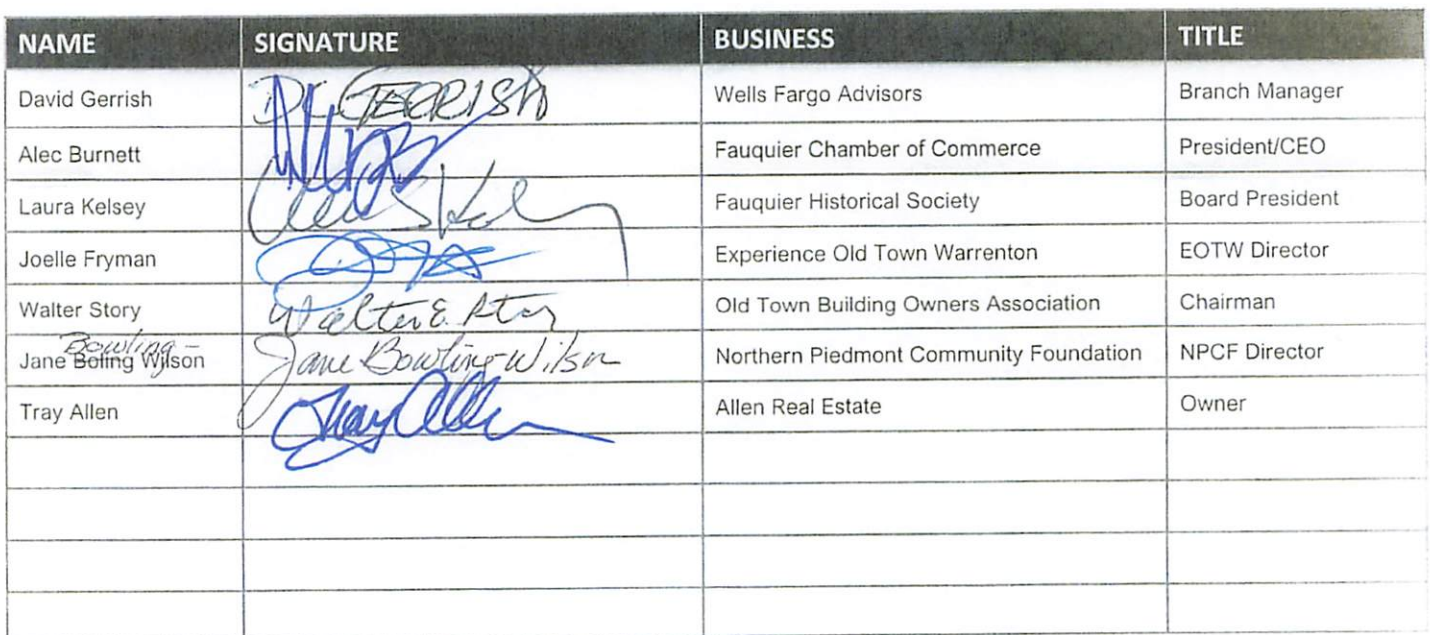 NAME SIGNATURE BUSINESS TITLE
David Gerrish GERRISH Wells Fargo Advisors Branch Manager
Alec Burnett Fauquier Chamber of Commerce President/CEO
Laura Kelsey Fauquier Historical Society Board President
Joelle Fryman Experience Old Town Warrenton EOTW Director
Walter Story Walter E. Story Old Town Building Owners Association Chairman
Bowling-
Jane Boling Wilson Jane Bowling-Wilson Northern Piedmont Community Foundation NPCF Director
Tray Allen Tray Allen Allen Real Estate Owner